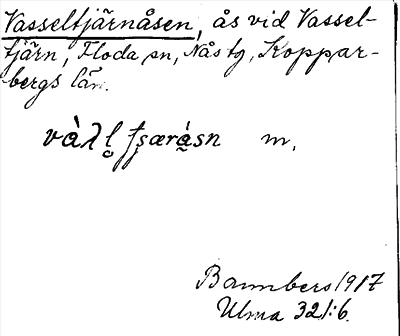 Vasseltjärnåsen, ås vid Vassel-
tjärn, Floda sn, Nås tg, Koppar-
bergs län.
m.
1917
Ulma 321:6.